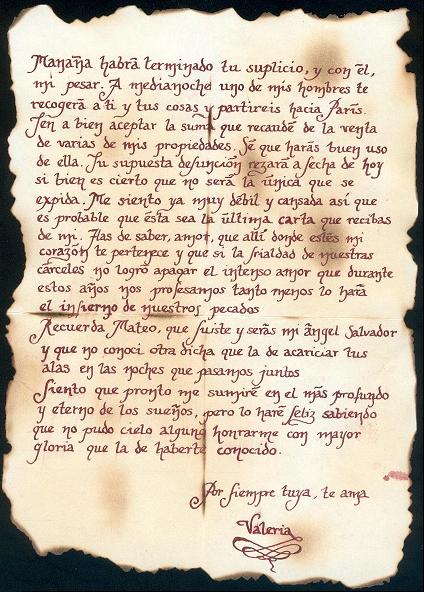 Manaña habrá terminado tu suplicio, y con él,
mi pesar. A medianoche uno de mis hombres te
recogerá a ti y tus cosas y partireis hacia París.
Ten a bien aceptar la suma que recaudé de la venta
de varias de mis propiedades. Sé que harás buen uso
de ella. Tu supuesta defunción rezará a fecha de hoy
si bien es cierto que no será la única que se
expida. Me siento ya muy débil y cansada así que
es probable que ésta sea la última carta que recibas
de mi. Has de saber, amor, que allí donde estés mi
corazón te pertenece y que si la frialdad de nuestras
cárceles no logró apagar el intenso amor que durante
estos años nos profesamos tanto menos lo hará
el infierno de nuestros pecados
Recuerda Mateo, que fuiste y serás mi ángel Salvador
y que no conocí otra dicha que la de acariciar tus
alas en las noches que pasamos juntos
Siento que pronto me sumiré en el más profundo
y eterno de los sueños, pero lo haré feliz sabiendo
que no pudo cielo alguno honrarme con mayor
gloria que la de haberte conocido.
Por siempre tuya, te ama
Valeria